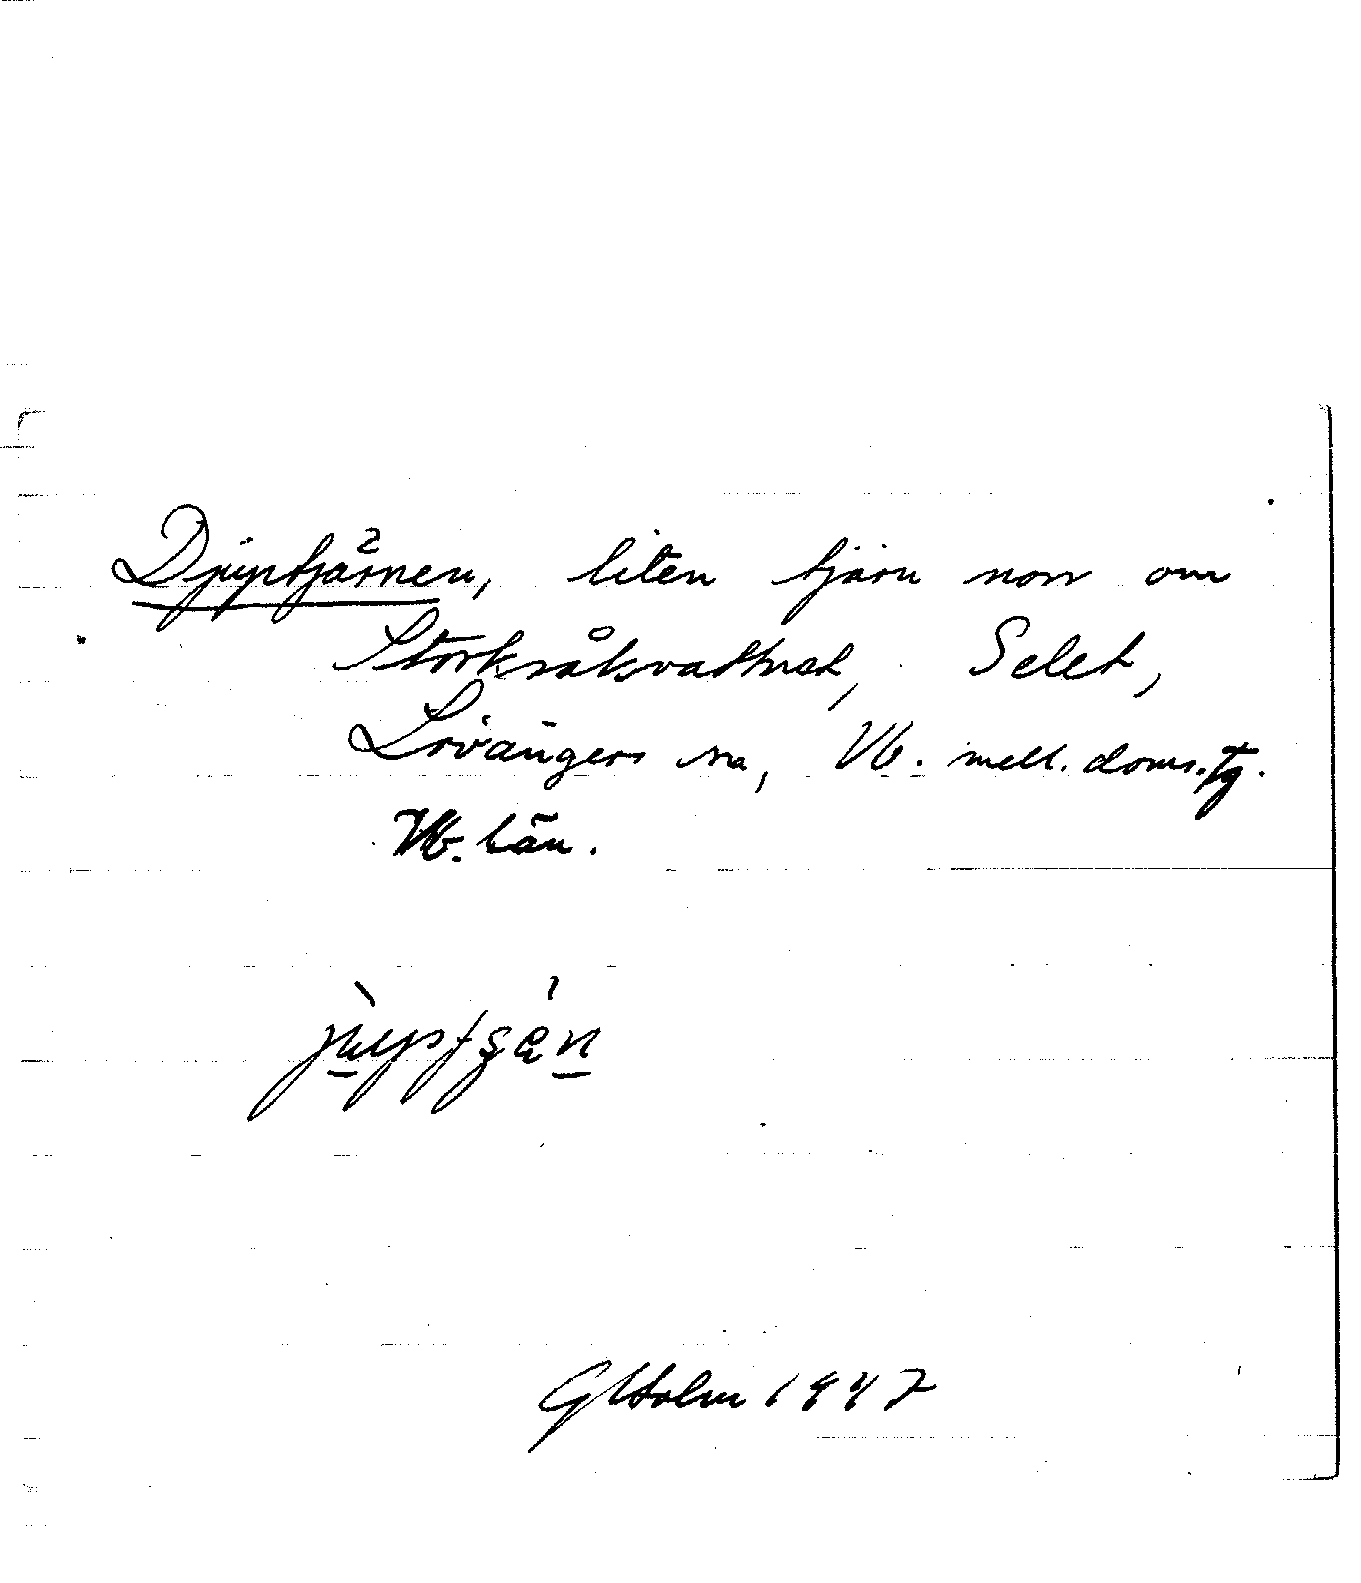 Djuptjärnen, liten tjärn norr om
Storksåkvattnet, Selet,
Lövångers sn, Vb. mell. doms. tg.
Vb. län.
GHolm 1947